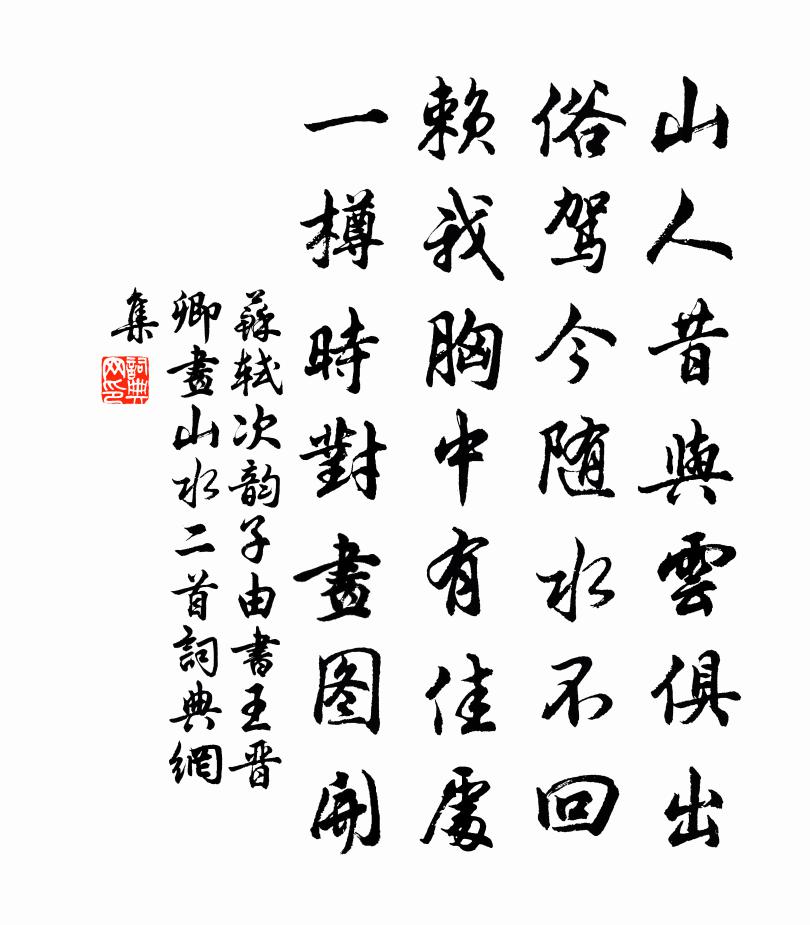 山人昔與雲俱出
俗駕今随水不回
賴我胸中有佳處
一樽時對畫图開
蘇軾次韵子由書王晋
卿畫山水二首詞典網
集
詞典
网印